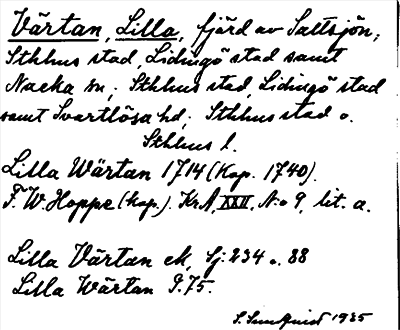 Värtan, Lilla, fjärd av Saltsjön;
Sthlms stad, Lidingö stad samt
Nacka sn; Sthlms stad, Lidingö stad
samt Svartlösa hd; Sthlms stad o.
Sthlms l.
Lilla Wärtan 1714 (Kop. 1740).
F. W. Hoppe (kop.). KrA, XXII, A:o 9, lit. a.
Lilla Värtan ek, Sj. 234 o. 88
Lilla Wärtan S. 75.
1935